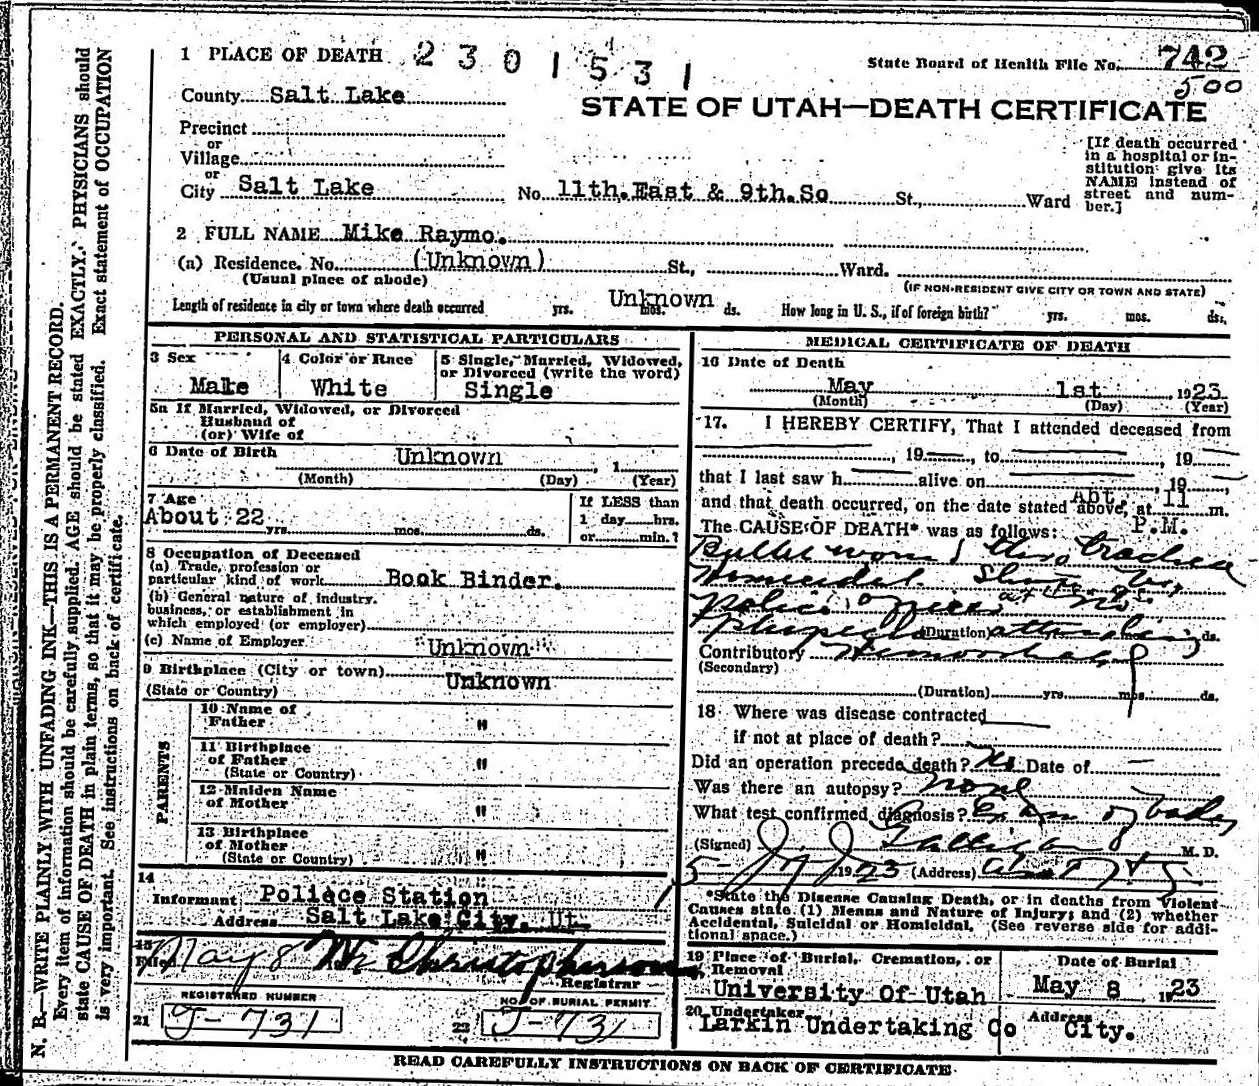 1 PLACE OF DEATH 2301531
State Board of Health File No. 742
500
County Salt Lake
STATE OF UTAH—DEATH CERTIFICATE
Precinct
or
Village
or
City Salt Lake No. 11th.East & 9th.So St., Ward
[If death occurred
in a hospital or in-
stitution give its
NAME instead of
street and num-
ber.]
2 FULL NAME Mike Raymo.
(a) Residence. No. (Unknown) St., Ward.
(Usual place of abode)
(IF NON-RESIDENT GIVE CITY OR TOWN AND STATE)
Length of residence in city or town where death occurred yrs. Unknown mos. ds. How long in U. S., if of foreign birth? yrs. mos. ds.
PERSONAL AND STATISTICAL PARTICULARS
3 Sex
Male
4 Color or Race
White
5 Single, Married, Widowed,
or Divorced (write the word)
Single
5a If Married, Widowed, or Divorced
Husband of
(or) Wife of
6 Date of Birth Unknown , 1
(Month) (Day) (Year)
7 Age
About 22 yrs. mos. ds.
If LESS than
1 day hrs.
or min.?
8 Occupation of Deceased
(a) Trade, profession or
particular kind of work Book Binder.
(b) General nature of industry.
business, or establishment in
which employed (or employer)
(c) Name of Employer Unknown
9 Birthplace (City or town)
(State or Country) Unknown
PARENTS
10 Name of
Father "
11 Birthplace
of Father "
(State or Country)
12 Maiden Name
of Mother "
13 Birthplace
of Mother "
(State or Country)
14
Informant Poliece Station
Address Salt Lake City, Ut
15
Filed May 8 Wr Christopherson
Registrar
REGISTERED NUMBER
21 J-731
NO. OF BURIAL PERMIT
22 J-731
MEDICAL CERTIFICATE OF DEATH
16 Date of Death
May 1st , 1923
(Month) (Day) (Year)
17. I HEREBY CERTIFY, That I attended deceased from
, 19 , to , 19
that I last saw h alive on , 19 ,
and that death occurred, on the date stated above, at Abt. 11 m.
The CAUSE OF DEATH* was as follows: P.M.
Bullet wound thro trachea
Homicidal. Shot by
Police officer at
(Duration) attending ds.
Contributory Hemorrhage
(Secondary)
(Duration) yrs. mos. ds.
18 Where was disease contracted
if not at place of death?
Did an operation precede death? No Date of
Was there an autopsy? none
What test confirmed diagnosis? Exam of body
(Signed) M. D.
5- 1923 (Address)
*State the Disease Causing Death, or in deaths from Violent
Causes state (1) Means and Nature of Injury; and (2) whether
Accidental, Suicidal or Homicidal. (See reverse side for addi-
tional space.)
19 Place of Burial, Cremation, or
Removal
University Of Utah
Date of Burial
May 8 1923
20 Undertaker
Larkin Undertaking Co
Address
City.
READ CAREFULLY INSTRUCTIONS ON BACK OF CERTIFICATE
N. B.—WRITE PLAINLY WITH UNFADING INK—THIS IS A PERMANENT RECORD.
Every item of information should be carefully supplied. AGE should be stated EXACTLY. PHYSICIANS should
state CAUSE OF DEATH in plain terms, so that it may be properly classified. Exact statement of OCCUPATION
is very important. See instructions on back of certificate.